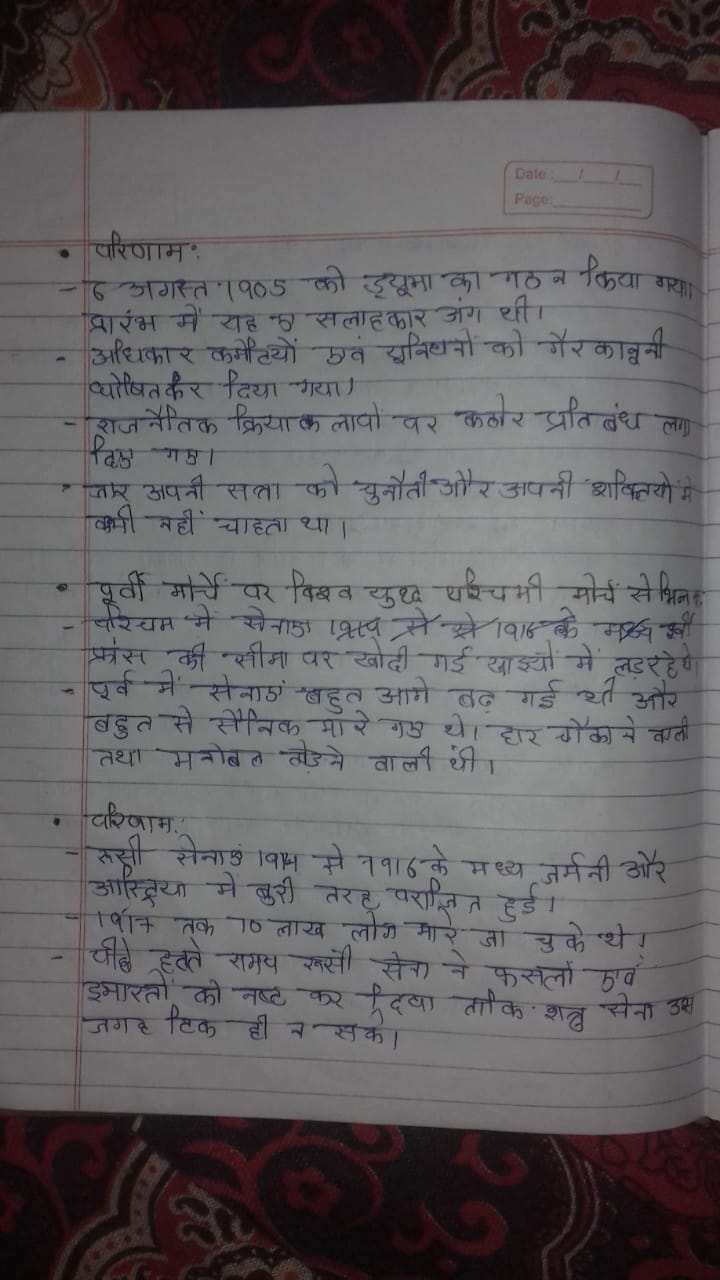 Date :__/__/__
Page:________
• परिणाम:
- 6 अगस्त 1905 को ड्यूमा का गठन किया गया।
प्रारंभ में यह ए सलाहकार अंग थी।
- अधिकार कमेटियों एवं यूनियनों को गैर कानूनी
घोषित कर दिया गया।
- राजनैतिक क्रियाकलापों पर कठोर प्रतिबंध लगा
दिए गए।
- जार अपनी सत्ता को चुनौती और अपनी शक्तियों में
कमी नहीं चाहता था।
• पूर्वी मोर्चे पर विश्व युध्द पश्चिमी मोर्चे से भिन्न
- पश्चिम में सेनाएं 1914 से 1916 के मध्य पूर्वी
फ्रांस की सीमा पर खोदी गई खाइयों में लड़ रहे थे
- पूर्व में सेनाएं बहुत आगे बढ़ गई थी और
बहुत से सैनिक मारे गए थे। हार चौंकाने वाली
तथा मनोबल तोड़ने वाली थी।
• परिणाम:
- रूसी सेनाएं 1914 से 1916 के मध्य जर्मनी और
आस्ट्रिया में बुरी तरह पराजित हुई।
- 1917 तक 70 लाख लोग मारे जा चुके थे।
- पीछे हटते समय रूसी सेना ने फसलों एवं
इमारतों को नष्ट कर दिया ताकि शत्रु सेना उस
जगह टिक ही न सके।